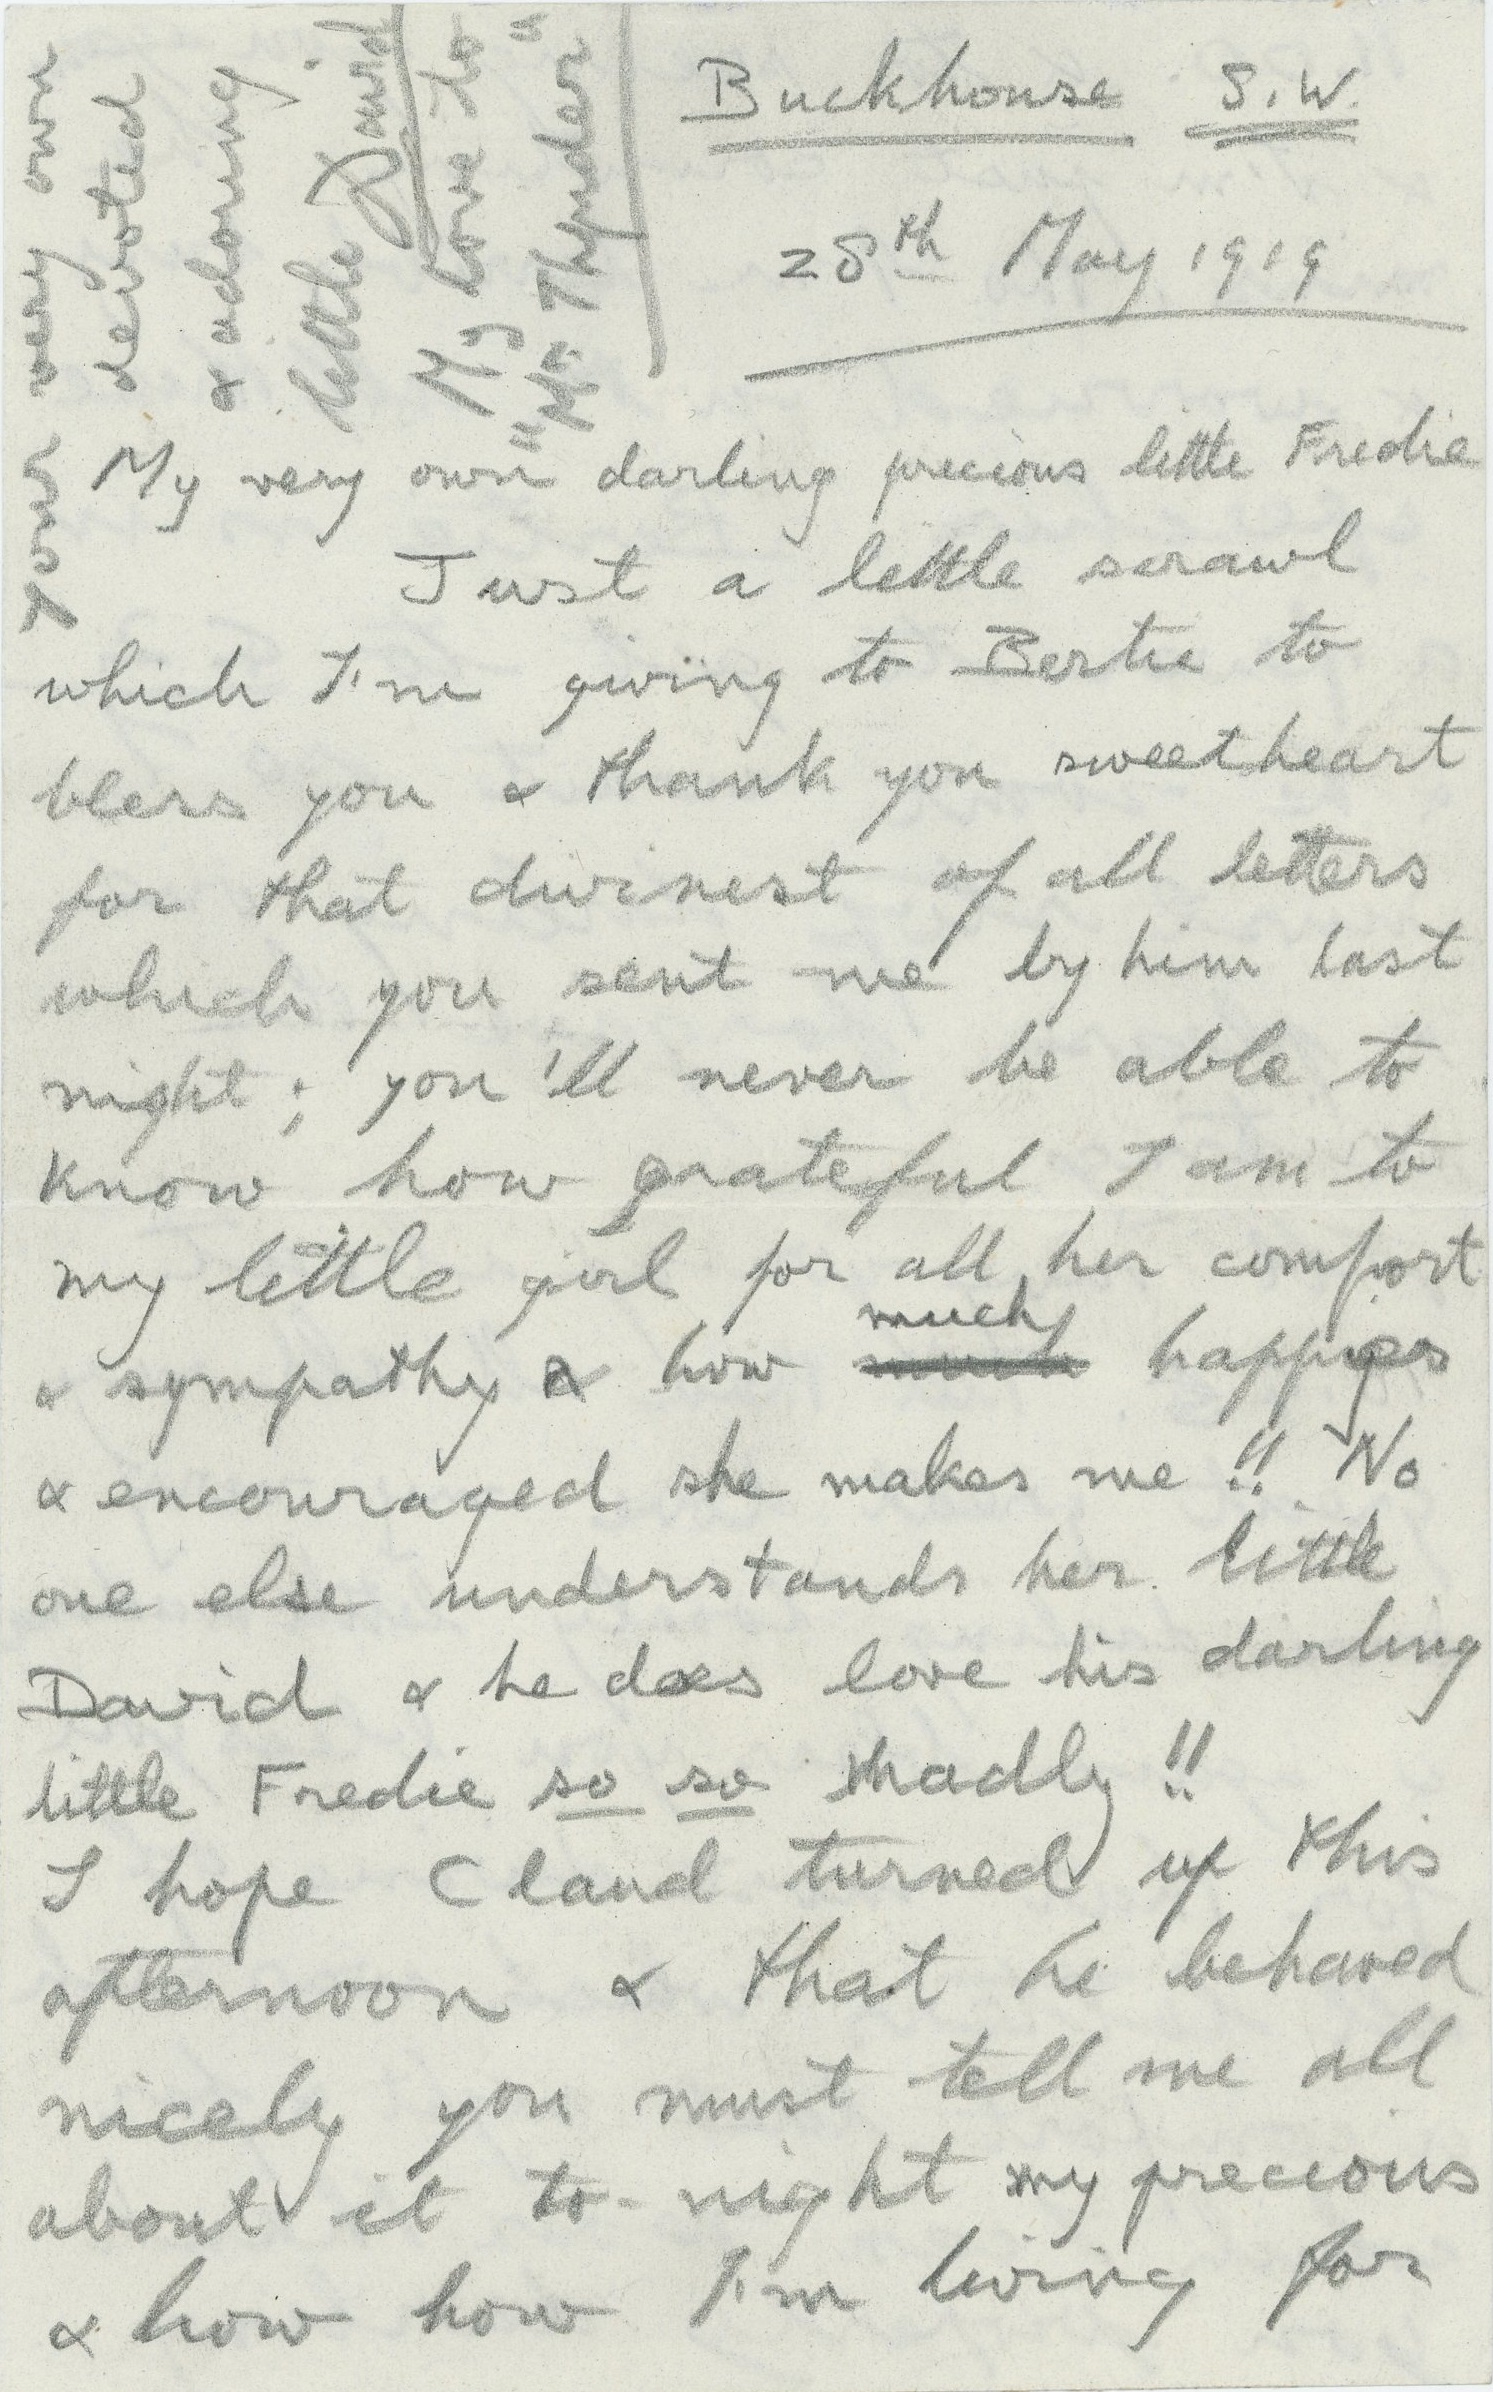 Buckhouse S.W.
28th May 1919
My very own darling precious little Fredie
Just a little scrawl
which I'm giving to Bertie to
bless you & thank you sweetheart
for that divinest of all letters
which you sent me by him last
night; you'll never be able to
know how grateful I am to
my little girl for all her comfort
& sympathy & how much happier
& encouraged she makes me!! No
one else understands her little
David & he does love his darling
little Fredie so so madly!!
I hope Claud turned up this
afternoon & that he behaved
nicely you must tell me all
about it to-night my precious
& how how I'm living for
Your very own
devoted
& adoring
little David
My love to
"Mr. Thynder"